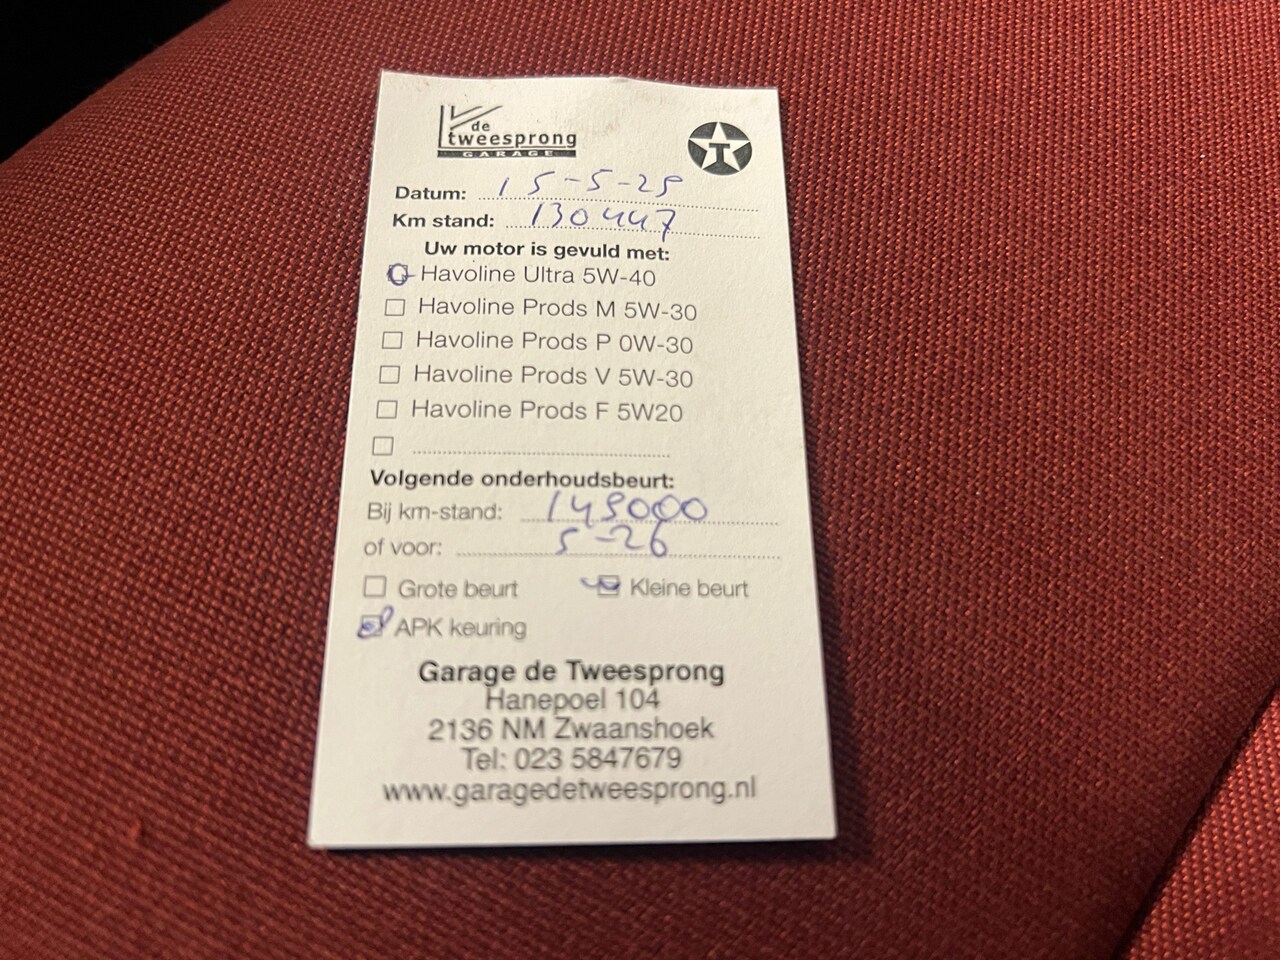 de
tweesprong
GARAGE
T
Datum: 15-5-25
Km stand: 130447
Uw motor is gevuld met:
Havoline Ultra 5W-40
Havoline Prods M 5W-30
Havoline Prods P 0W-30
Havoline Prods V 5W-30
Havoline Prods F 5W20
Volgende onderhoudsbeurt:
Bij km-stand: 145000
of voor: 5-26
Grote beurt Kleine beurt
APK keuring
Garage de Tweesprong
Hanepoel 104
2136 NM Zwaanshoek
Tel: 023 5847679
www.garagedetweesprong.nl